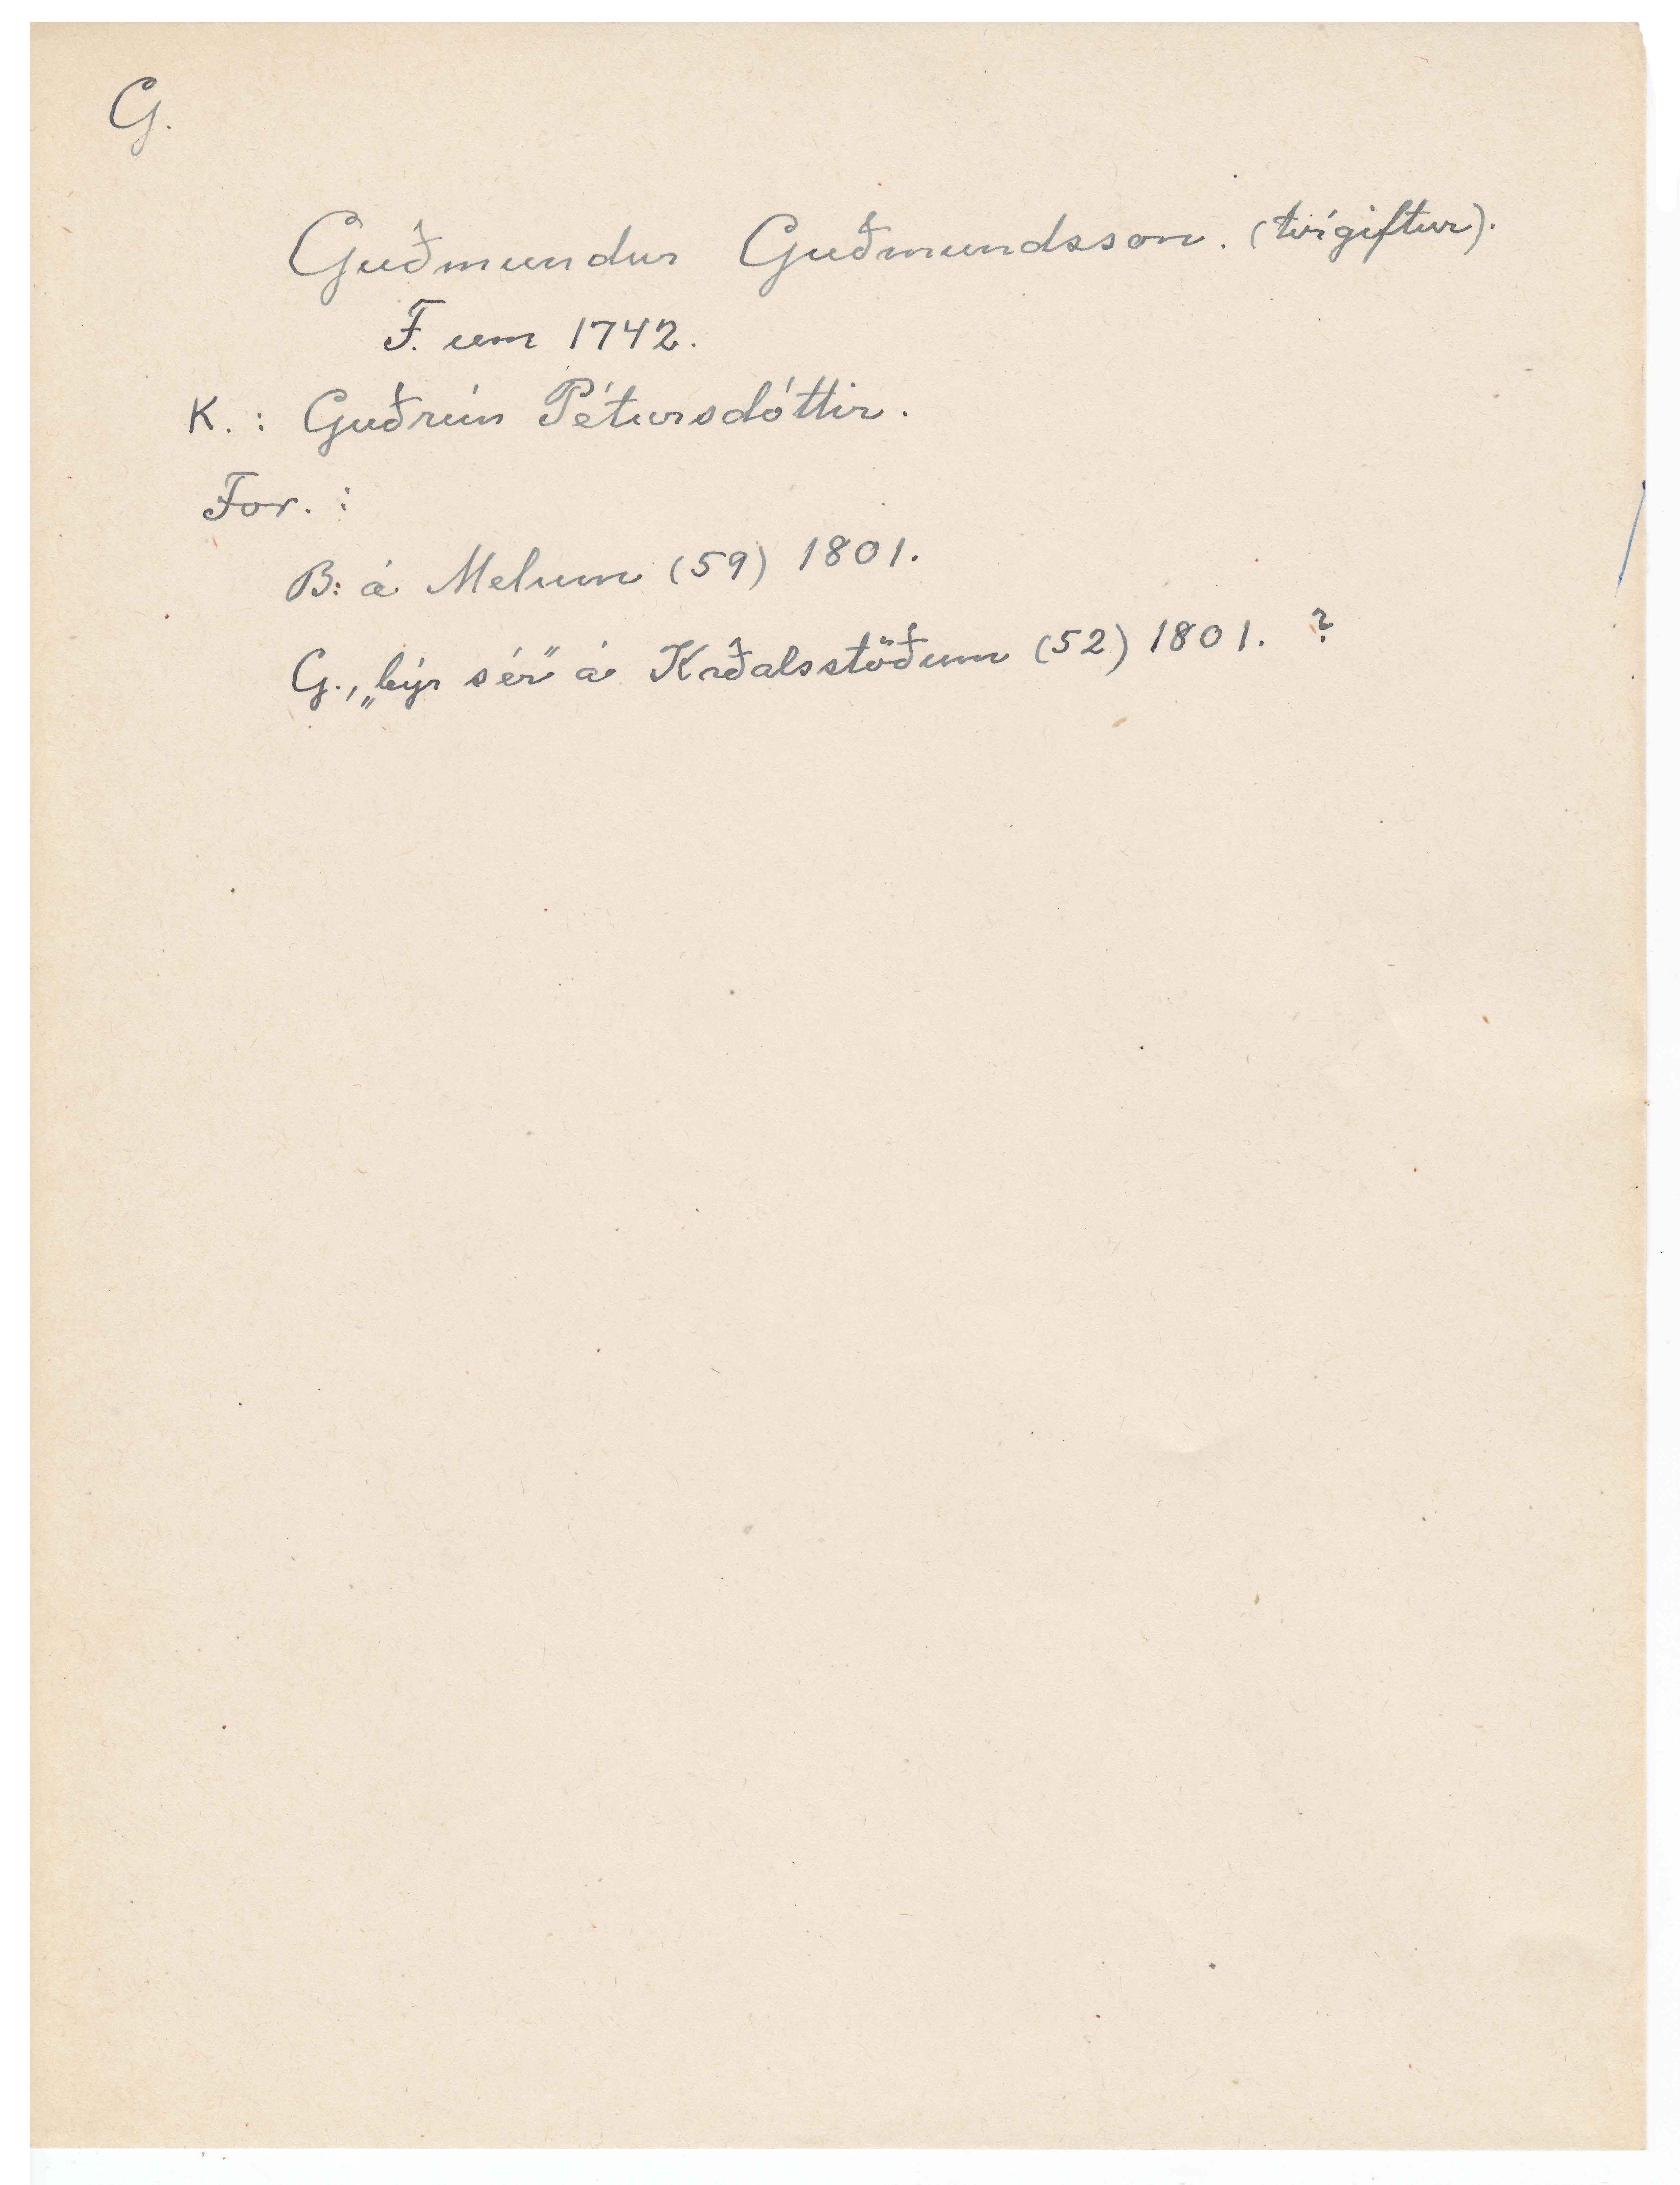 G.
Guðmundur Guðmundsson. (tvígiftur).
F. um 1742.
K. : Guðrún Pétursdóttir.
For. :
B: á Melum (59) 1801.
G., „býr sér" á Krðalsstöðum (52) 1801. ?